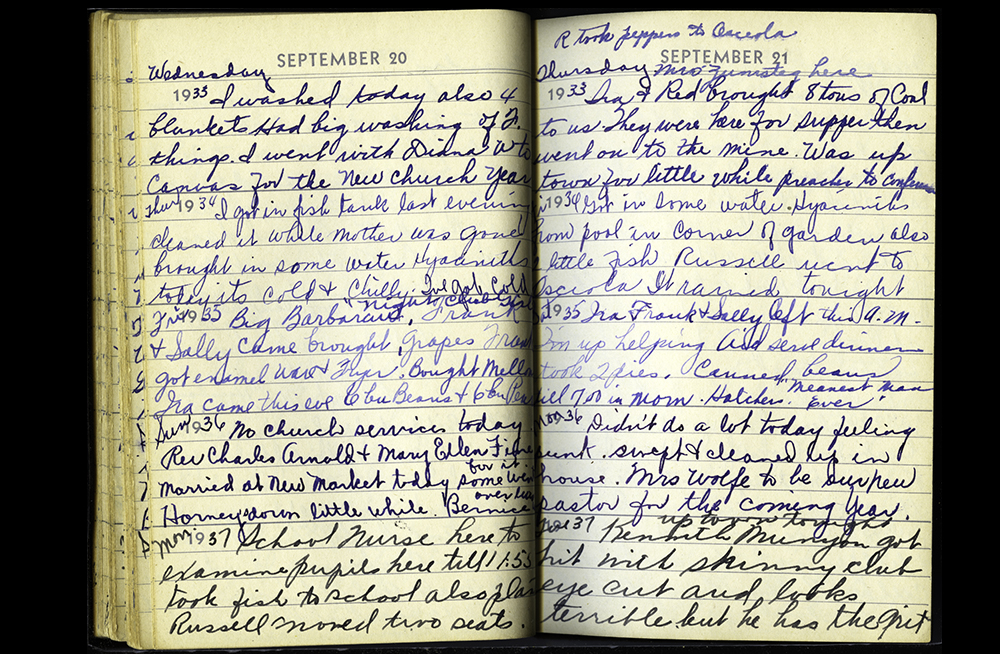 SEPTEMBER 20
Wednesday
1933 I washed today also 4
blankets Had big washing of F.
things. I went with Diana W to
Canvas for the New Church Year
Thur 1934 I got in fish tank last evening
cleaned it while Mother was gone
brought in some water Hyacinths
today its cold & chilly. I've got cold
Fri 1935 Big Barbara
"Night Club Girl"
Frank
& Sally came brought Grapes Frank
got enamel ware & Bought
Ira came this eve 6 bu Beans & 6 bu
Sun 1936 No church services today
Rev Charles Arnold & Mary Ellen
Married at New Market today
for it
some went
over
Horney down little while. Bernice
Mon 1937 School Nurse here to
examine pupils here till 11:53
took fish to school also
Russell moved two seats.
R took peppers to Osceola
SEPTEMBER 21
Thursday Mrs Zumsteg here
1933 Ira & Red brought 8 tons of Coal
to us. They were here for supper then
went on to the mine. Was up
town for little while preacher to
1934 Got in some water Hyacinths
from pool in corner of garden also
little fish Russell went to
Osceola It rained tonight
1935 Ira Frank & Sally left this A.M.
I'm up helping Aid serve dinner
took 2 pies. Canned beans
till 7,00 in morn. Hatchers. "Meanest man
Ever"
Mon 36 Didn't do a lot today feeling
punk. swept & cleaned up in
house. Mrs Wolfe to be supper
pastor for the coming year.
up town tonight
Tue 37 Kenneth Munyon got
hit with skinny club
eye cut and looks
terrible but he has the grit